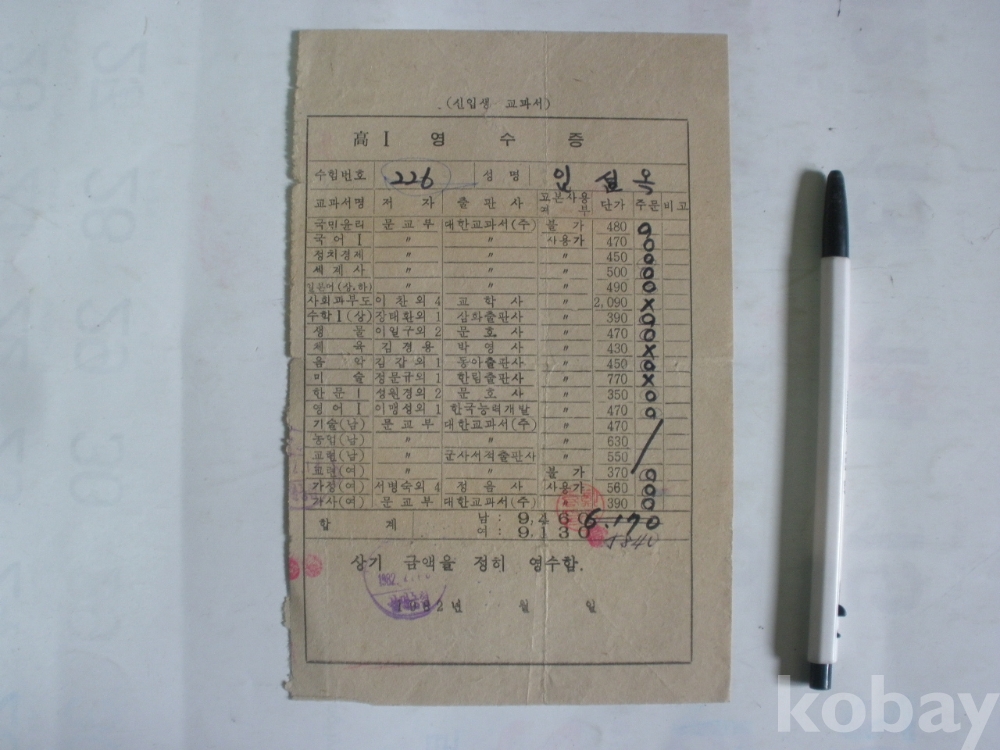 (신입생 교과서)
高 I 영 수 증
수험번호 226 성 명 임 섭 옥
교과서명 저 자 출 판 사 교본사용여부 단가 주문 비고
국민윤리 문교부 대한교과서(주) 불 가 480 o
국 어 I 〃 〃 사용가 470 o
정치경제 〃 〃 〃 450 o
세 계 사 〃 〃 〃 500 o
일본어(상.하) 〃 〃 〃 490 o
사회과부도 이 찬외 4 교 학 사 〃 2,090 x
수학 I (상) 장태환외 1 삼화출판사 〃 390 o
생 물 이일구외 2 문 호 사 〃 470 o
체 육 김 정 용 박 영 사 〃 430 x
음 악 김 갑외 1 동아출판사 〃 450 o
미 술 정문규외 1 한림출판사 〃 770 x
한 문 I 성원경외 2 문 호 사 〃 350 o
영 어 I 이맹성외 1 한국능력개발 〃 470 o
기술(남) 문 교 부 대한교과서(주) 〃 470
농업(남) 〃 〃 〃 630
교련(남) 〃 군사서적출판사 〃 550
교련(여) 〃 〃 불 가 370 o
가정(여) 서병숙외 4 정 음 사 사용가 560 o
가사(여) 문 교 부 대한교과서(주) 〃 390 o
합 계 남 : 9,460 6.170
여 : 9,130 5840
상기 금액을 정히 영수함.
1982년 월 일
kobay